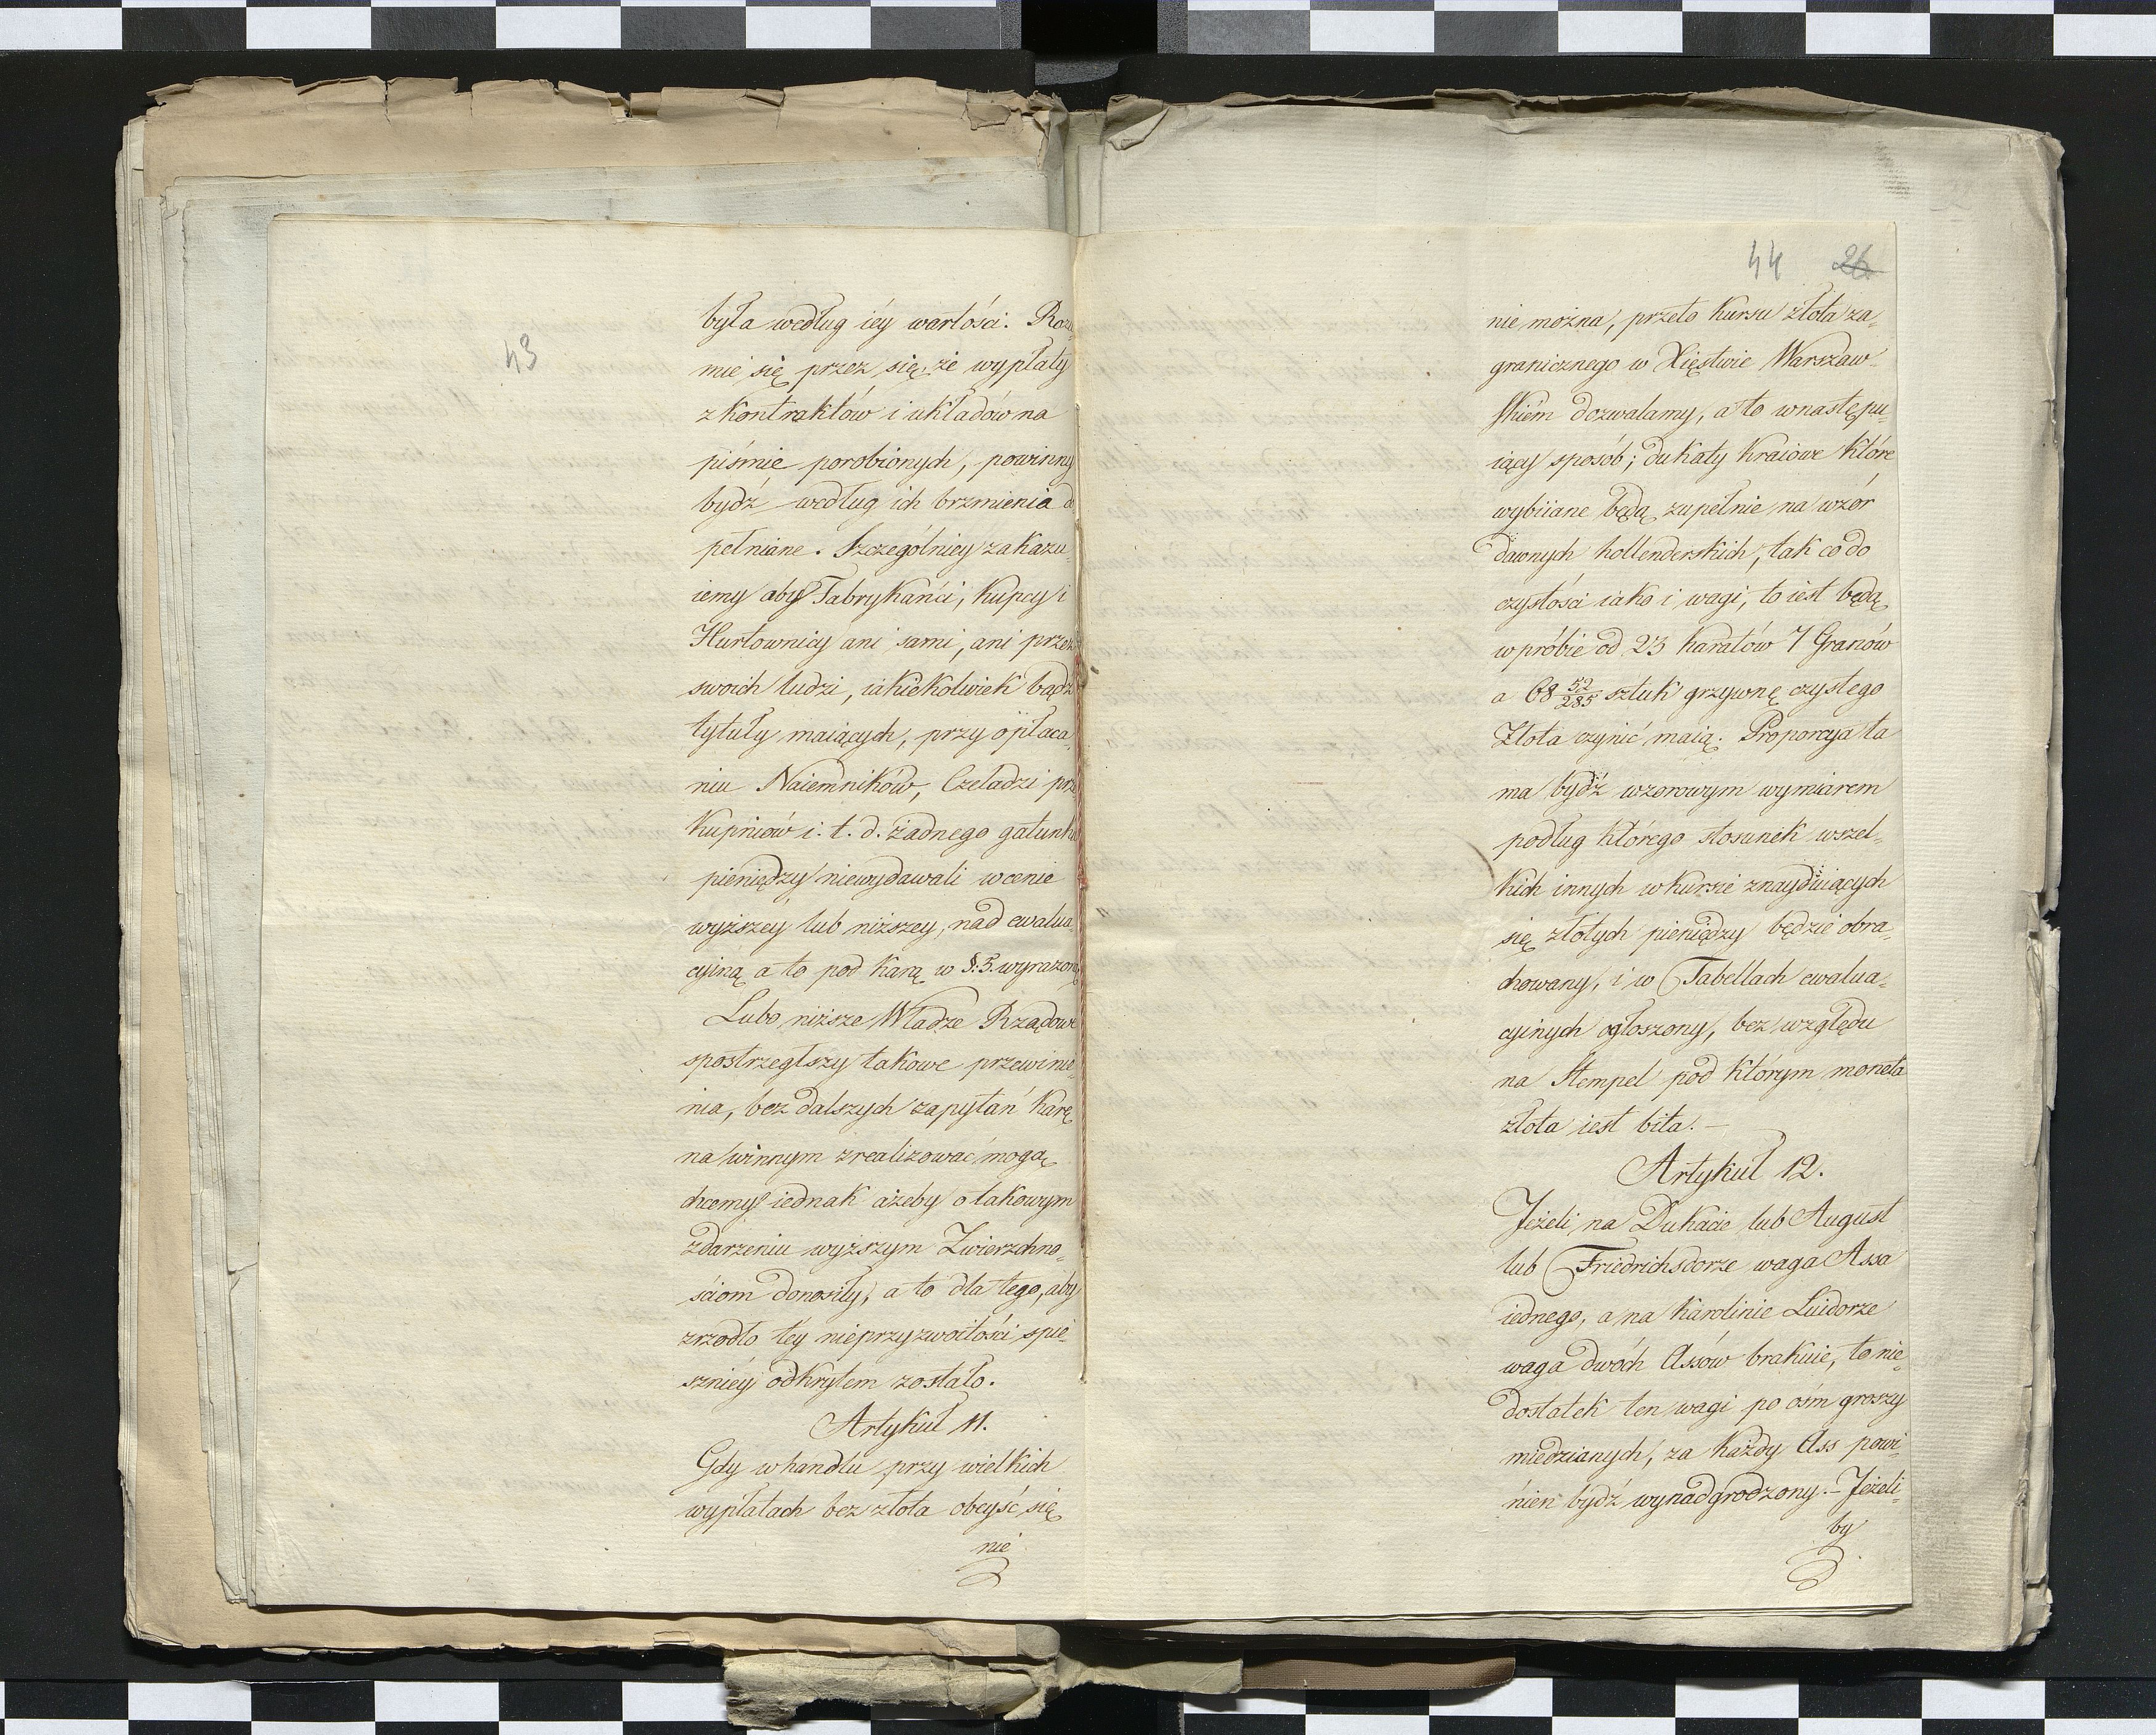 43
była według iéy wartości. Rozu
mie się przez się, że wypłaty
z kontraktów i układów na
piśmie porobionych, powinny
bydź według ich brzmienia do
pełniane. Szczególniey zakazu
iemy aby Fabrykańci, Kupcy i
Hurtownicy ani sami, ani przez
swoich ludzi, iakiekolwiek bądź
tytuły maiących, przy opłaca-
niu Naiemników, Czeladzi prze
Kupniów i. t. d. żadnego gatunku
pieniędzy niewydawali w cenie
wyższey lub niższey, nad ewalua-
cyiną a to pod karą w §: 5. wyrażoną
Lubo niższe Władze Rządowe
spostrzegłszy takowe przewinie-
nia, bez dalszych zapytań karę
na winnym zrealizować mogą,
chcemy iednak ażeby o takowym
zdarzeniu wyższym Zwierzchno-
ściom donosiły, a to dla tego, aby
zrzodło tey nieprzyzwoitości spie-
szniéy odkrytem zostało.
Artykuł 11.
Gdy w handlu przy wielkich
wypłatach bez złota obeyść się
nie
44 26
nie można, przeto kursu złota za-
granicznego w Xięstwie Warszaw-
skiém dozwalamy, a to w następu-
iący sposób; dukaty kraiowe które
wybiiane będą zupełnie na wzór
dawnych hollenderskich, tak co do
czystości iako i wagi, to iest będą
w próbie od 23 karatów 7 Granów
a 68 52/285 sztuk grzywnę czystego
Złota czynić maią. Proporcya ta
ma bydź wzorowym wymiarem
podług którego stosunek wszel-
kich innych w kursie znayduiących
się złotych pieniędzy będzie obra-
chowany, i w Tabellach ewalua-
cyinych ogłoszony, bez względu
na Stempel pod którym moneta
złota iest bita. —
Artykuł 12.
Jeżeli na Dukacie lub August
lub Friedrichsdorze waga Assa
iednego, a na Karolinie Luidorze
waga dwóch Assów brakuie, to nie-
dostatek ten wagi po ośm groszy
miedzianych, za każdy Ass powi-
nien bydź wynadgrodzony. — Jeżeli-
by